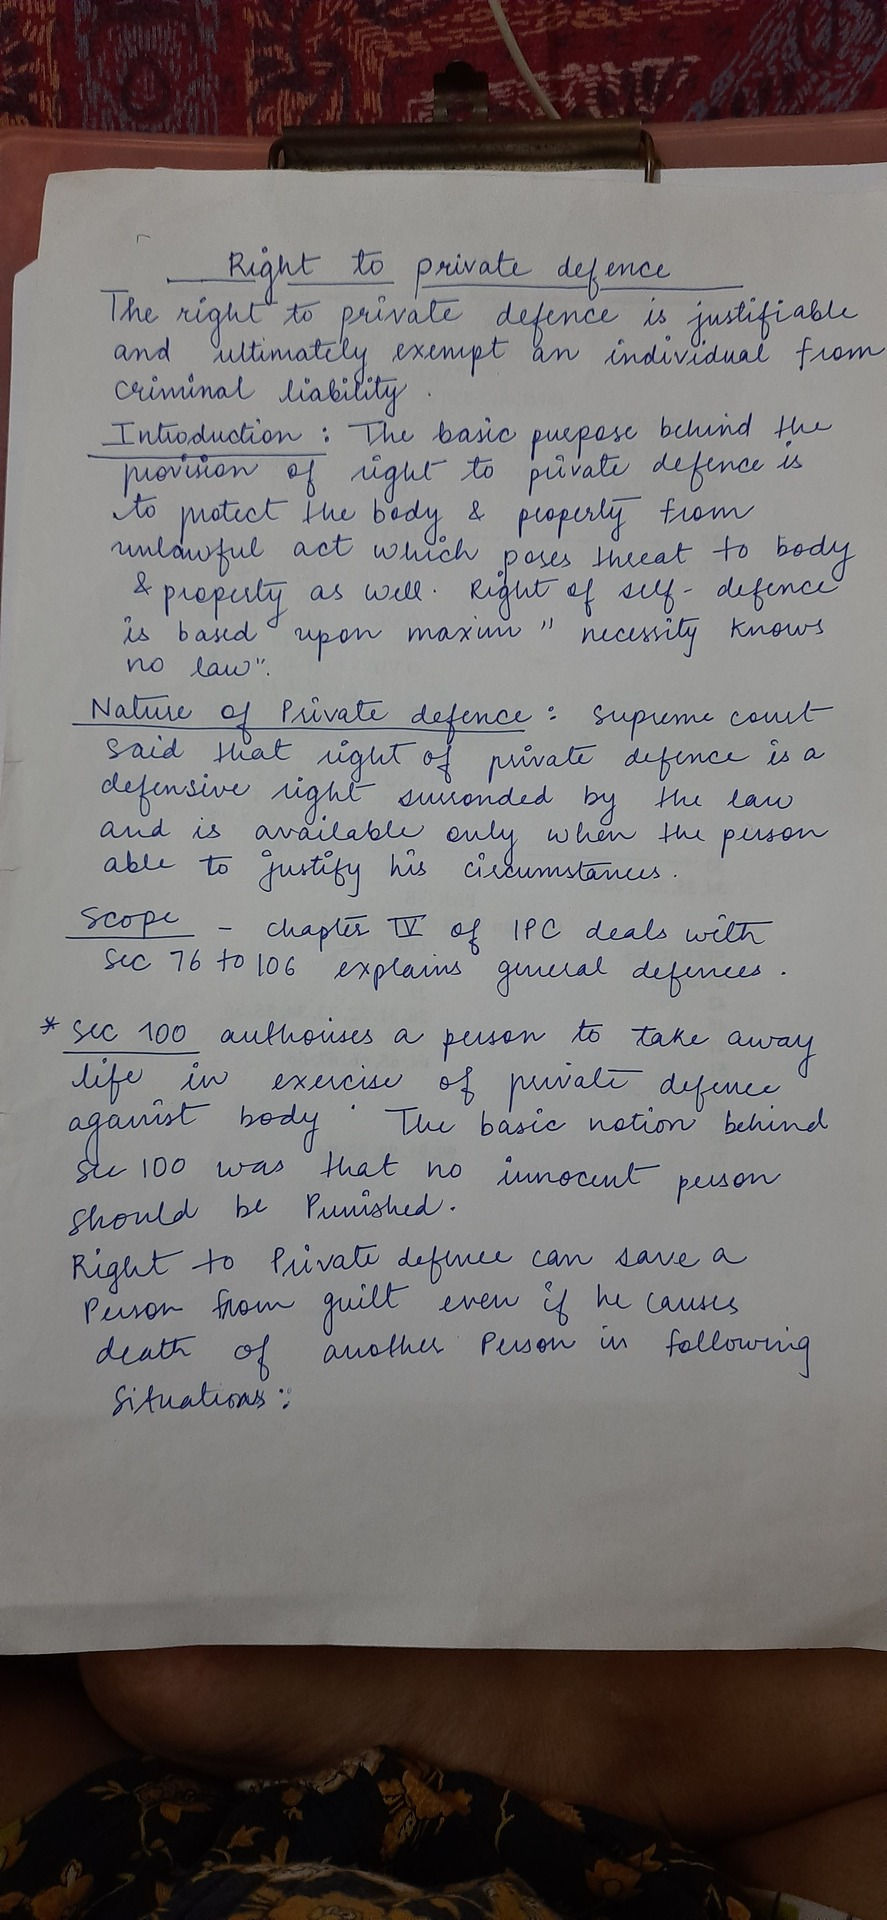 Right to private defence
The right to private defence is justifiable
and ultimately exempt an individual from
criminal liability.
Introduction: The basic purpose behind the
provision of right to private defence is
to protect the body & property from
unlawful act which poses threat to body
& property as well. Right of self-defence
is based upon maxim "necessity knows
no law".
Nature of Private defence: Supreme court
said that right of private defence is a
defensive right surronded by the law
and is available only when the person
able to justify his circumstances.
Scope - chapter IV of IPC deals with
Sec 76 to 106 explains general defences.
* Sec 100 authorises a person to take away
life in exercise of private defence
against body. The basic notion behind
Sec 100 was that no innocent person
should be Punished.
Right to Private defence can save a
Person from guilt even if he causes
death of another Person in following
situations: